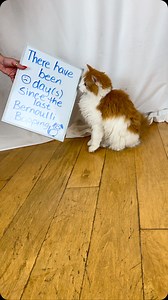 There have
been
0 day(s)
since the
last
Bernoulli
Booping